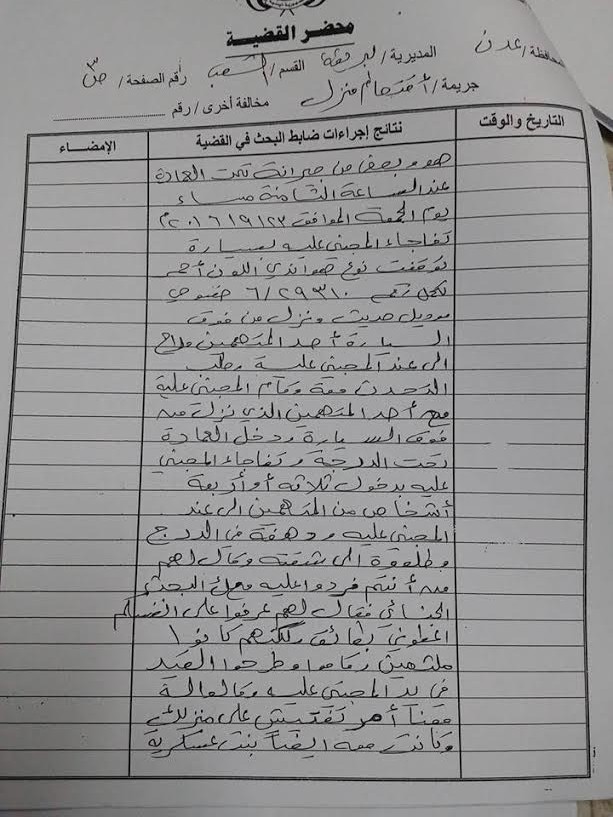 محضر القضية
المحافظة/ عدن المديرية/ البريقة القسم/ الشعب رقم الصفحة/ ص٣
جريمة/ أقتحام منزل مخالفة أخرى/ رقم
التاريخ والوقت نتائج إجراءات ضابط البحث في القضية الإمضاء
هو وبعض من جيرانه تحت العمارة
عند الساعة الثامنة مساء
يوم الجمعة الموافق ٢٠١٦/٩/٢٣م
تفاجاء المجني عليه بسيارة
توقفت نوع هواندي اللون أحمر
تحمل رقم ٦/٢٩٣١٠ خصوصي
موديل حديث ونزل من فوق
السيارة أحد المتهمين وراح
الى عند المجني عليه وطلب
التحدث معه وقام المجني عليه
مع أحد المتهمين الذي نزل من
فوق السيارة ودخل العمارة
تحت الدرجة وتفاجاء المجني
عليه بدخول ثلاثه أو أربعة
أشخاص من المتهمين الى عند
المجني عليه ودهفة في الدرج
وطلعوة الى شقته وقال لهم
من أنتم فردوا عليه معك البحث
الجنائي فقال لهم عرفوا على انفسكم
اعطوني بطائق ولكنهم كانوا
ملثمين وقاموا وطرحوا القيد
في يد المجني عليه وقالوا لة
معنا أمر تفتيش على منزلك
وكانت معه ايضاً بنت عسكرية